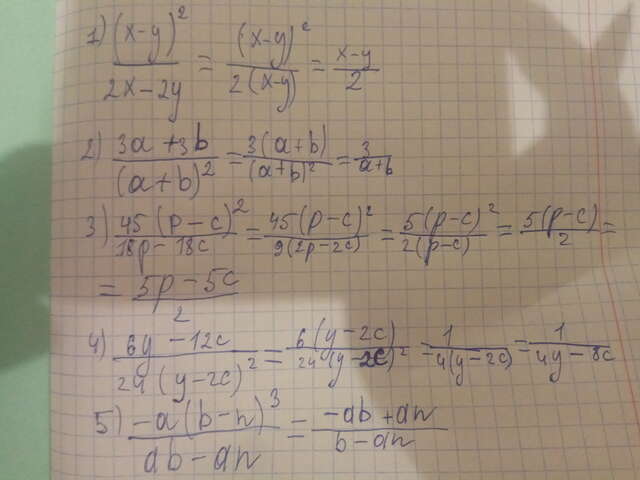 1) (x-y)²/(2x-2y) = (x-y)²/(2(x-y)) = (x-y)/2
2) (3a+3b)/(a+b)² = 3(a+b)/(a+b)² = 3/(a+b)
3) 45(p-c)²/(18p-18c) = 45(p-c)²/(9(2p-2c)) = 5(p-c)²/(2(p-c)) = 5(p-c)/2 =
= (5p-5c)/2
4) (6y-12c)/(24(y-2c)²) = 6(y-2c)/(24(y-2c)²) = 1/(4(y-2c)) = 1/(4y-8c)
5) -a(b-n)³/(ab-an) = (-ab+an)/(b-an)